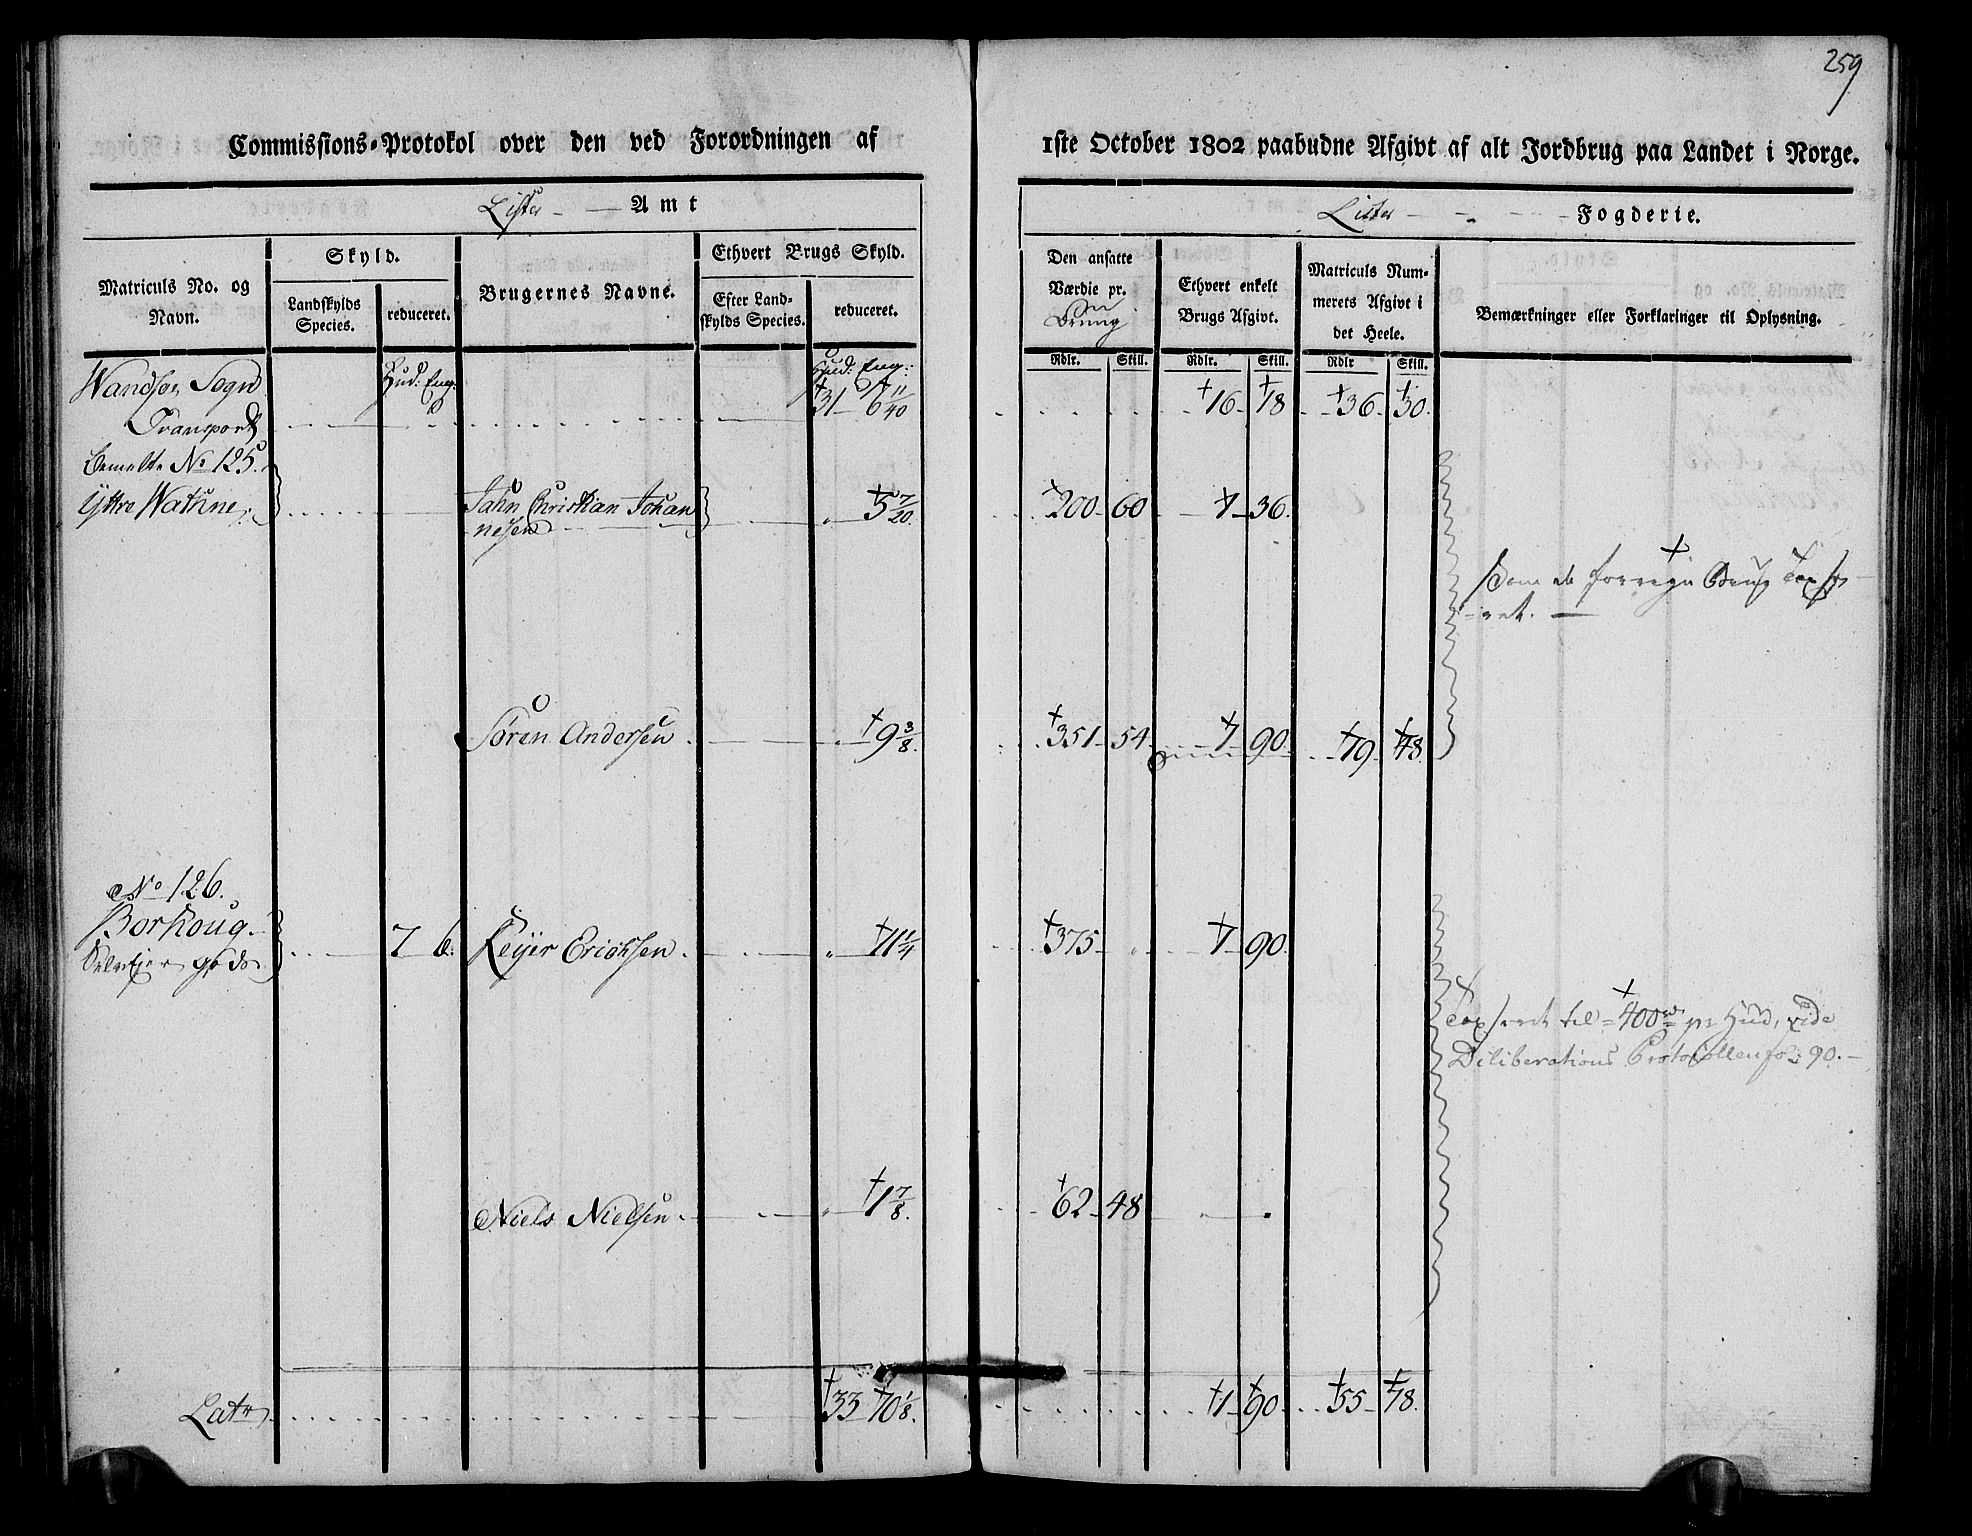 259
Commissions-Protokol over den ved Forordningen af
1ste October 1802 paabudne Afgivt af alt Jordbrug paa Landet i Norge.
Lister Amt
Lister Fogderie.
Matriculs No. og Navn.
Skyld.
Landskylds Species.
reduceret.
Brugernes Navne.
Ethvert Brugs Skyld.
Efter Landskylds Species.
reduceret.
Den ansatte Værdie pr.
Ethvert enkelt Brugs Afgivt.
Matriculs Nummerets Afgivt i det Heele.
Bemærkninger eller Forklaringer til Oplysning.
Rdlr. Skill. Rdlr. Skill. Rdlr Skill.
Sogn Hud: Eng: Hud: Eng:
Transport 31 6 11/40 16 18 36 30.
bemelte No 125.
Yttre Wathne Jahn Christian Johan 5 7/20. 200 60 1 36.
nesen
forrige Brug
Sören Andersen 9 3/8. 351 54 1 90 19 48
No 126.
Borhoug 7 6: Reyer Erichsen 11 1/4 375 1 90
Selveyer gods
til 400 rd pr Hud, vide
Deliberations Protocollen fol: 90.
Niels Nielsen 1 7/8. 62 48
Latr 33 10 1/8. 1 90 55 78.